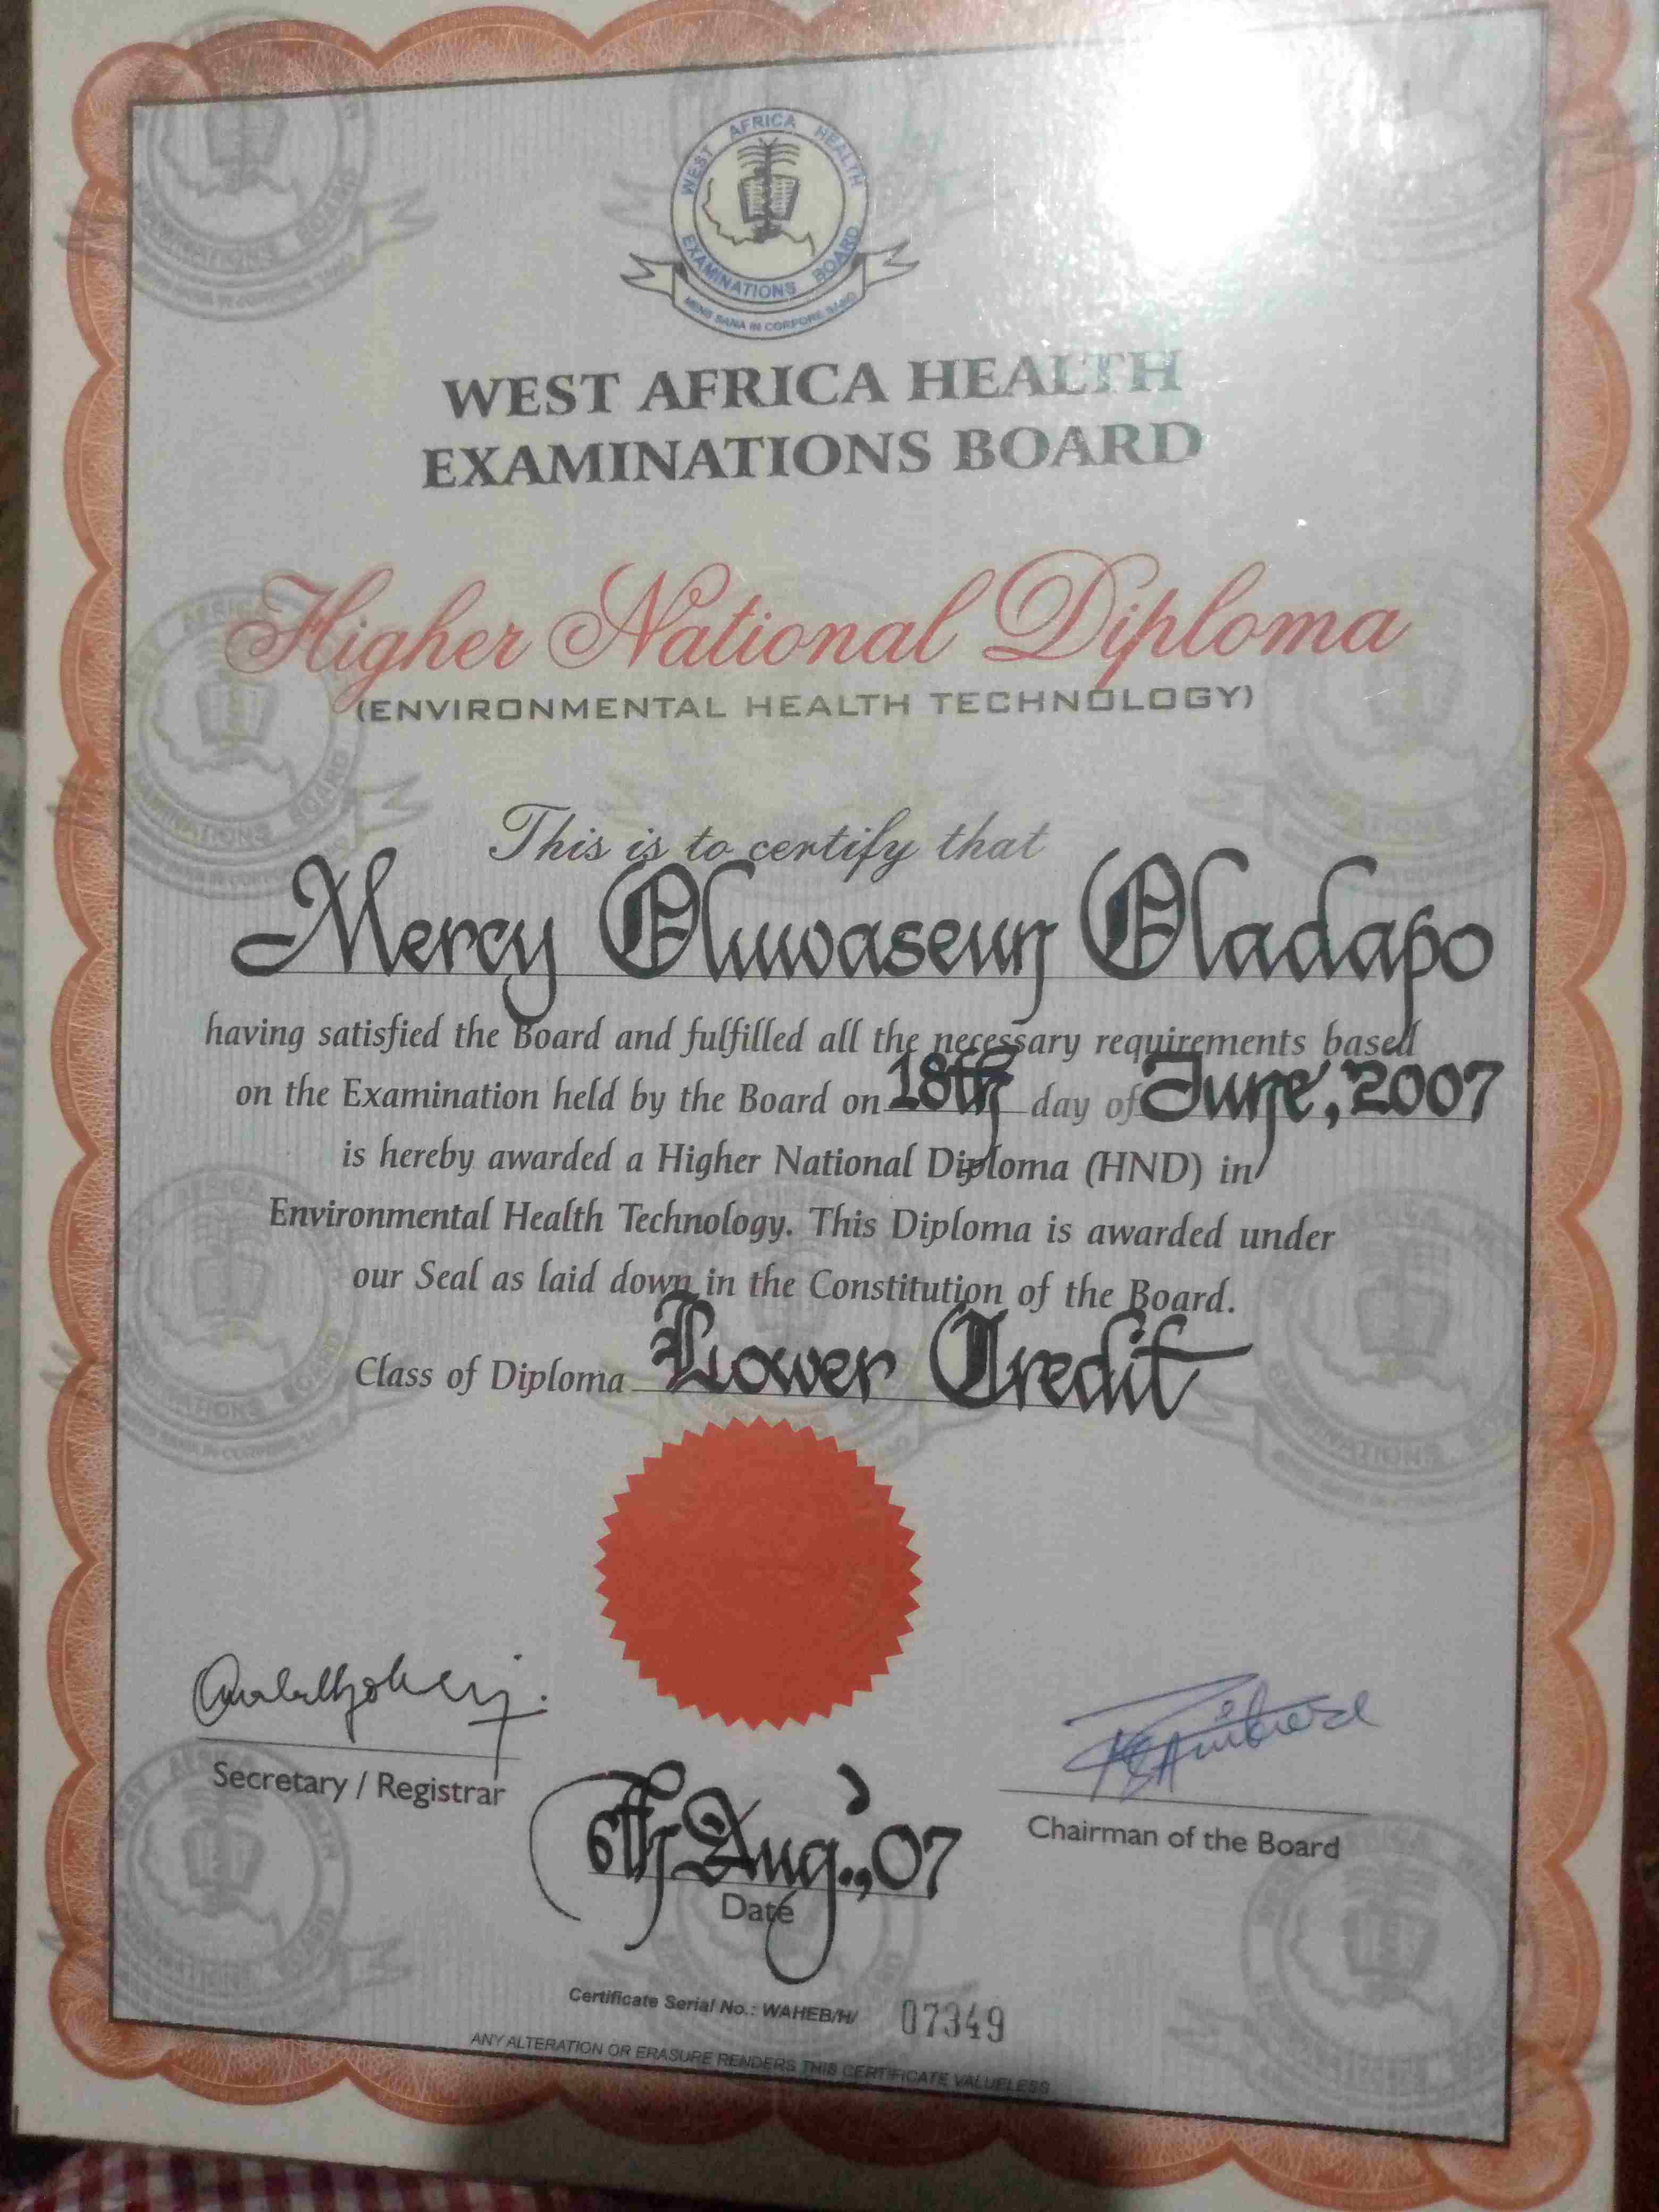 WEST AFRICA HEALTH
EXAMINATIONS BOARD
MENS SANA IN CORPORE SANO
WEST AFRICA HEALTH
EXAMINATIONS BOARD
Higher National Diploma
(ENVIRONMENTAL HEALTH TECHNOLOGY)
This is to certify that
Mercy Oluwaseun Oladapo
having satisfied the Board and fulfilled all the necessary requirements based
on the Examination held by the Board on 18th day of June, 2007
is hereby awarded a Higher National Diploma (HND) in
Environmental Health Technology. This Diploma is awarded under
our Seal as laid down in the Constitution of the Board.
Class of Diploma Lower Credit
Secretary / Registrar
Chairman of the Board
6th Aug., 07
Date
Certificate Serial No.: WAHEB/H/ 07349
ANY ALTERATION OR ERASURE RENDERS THIS CERTIFICATE VALUELESS